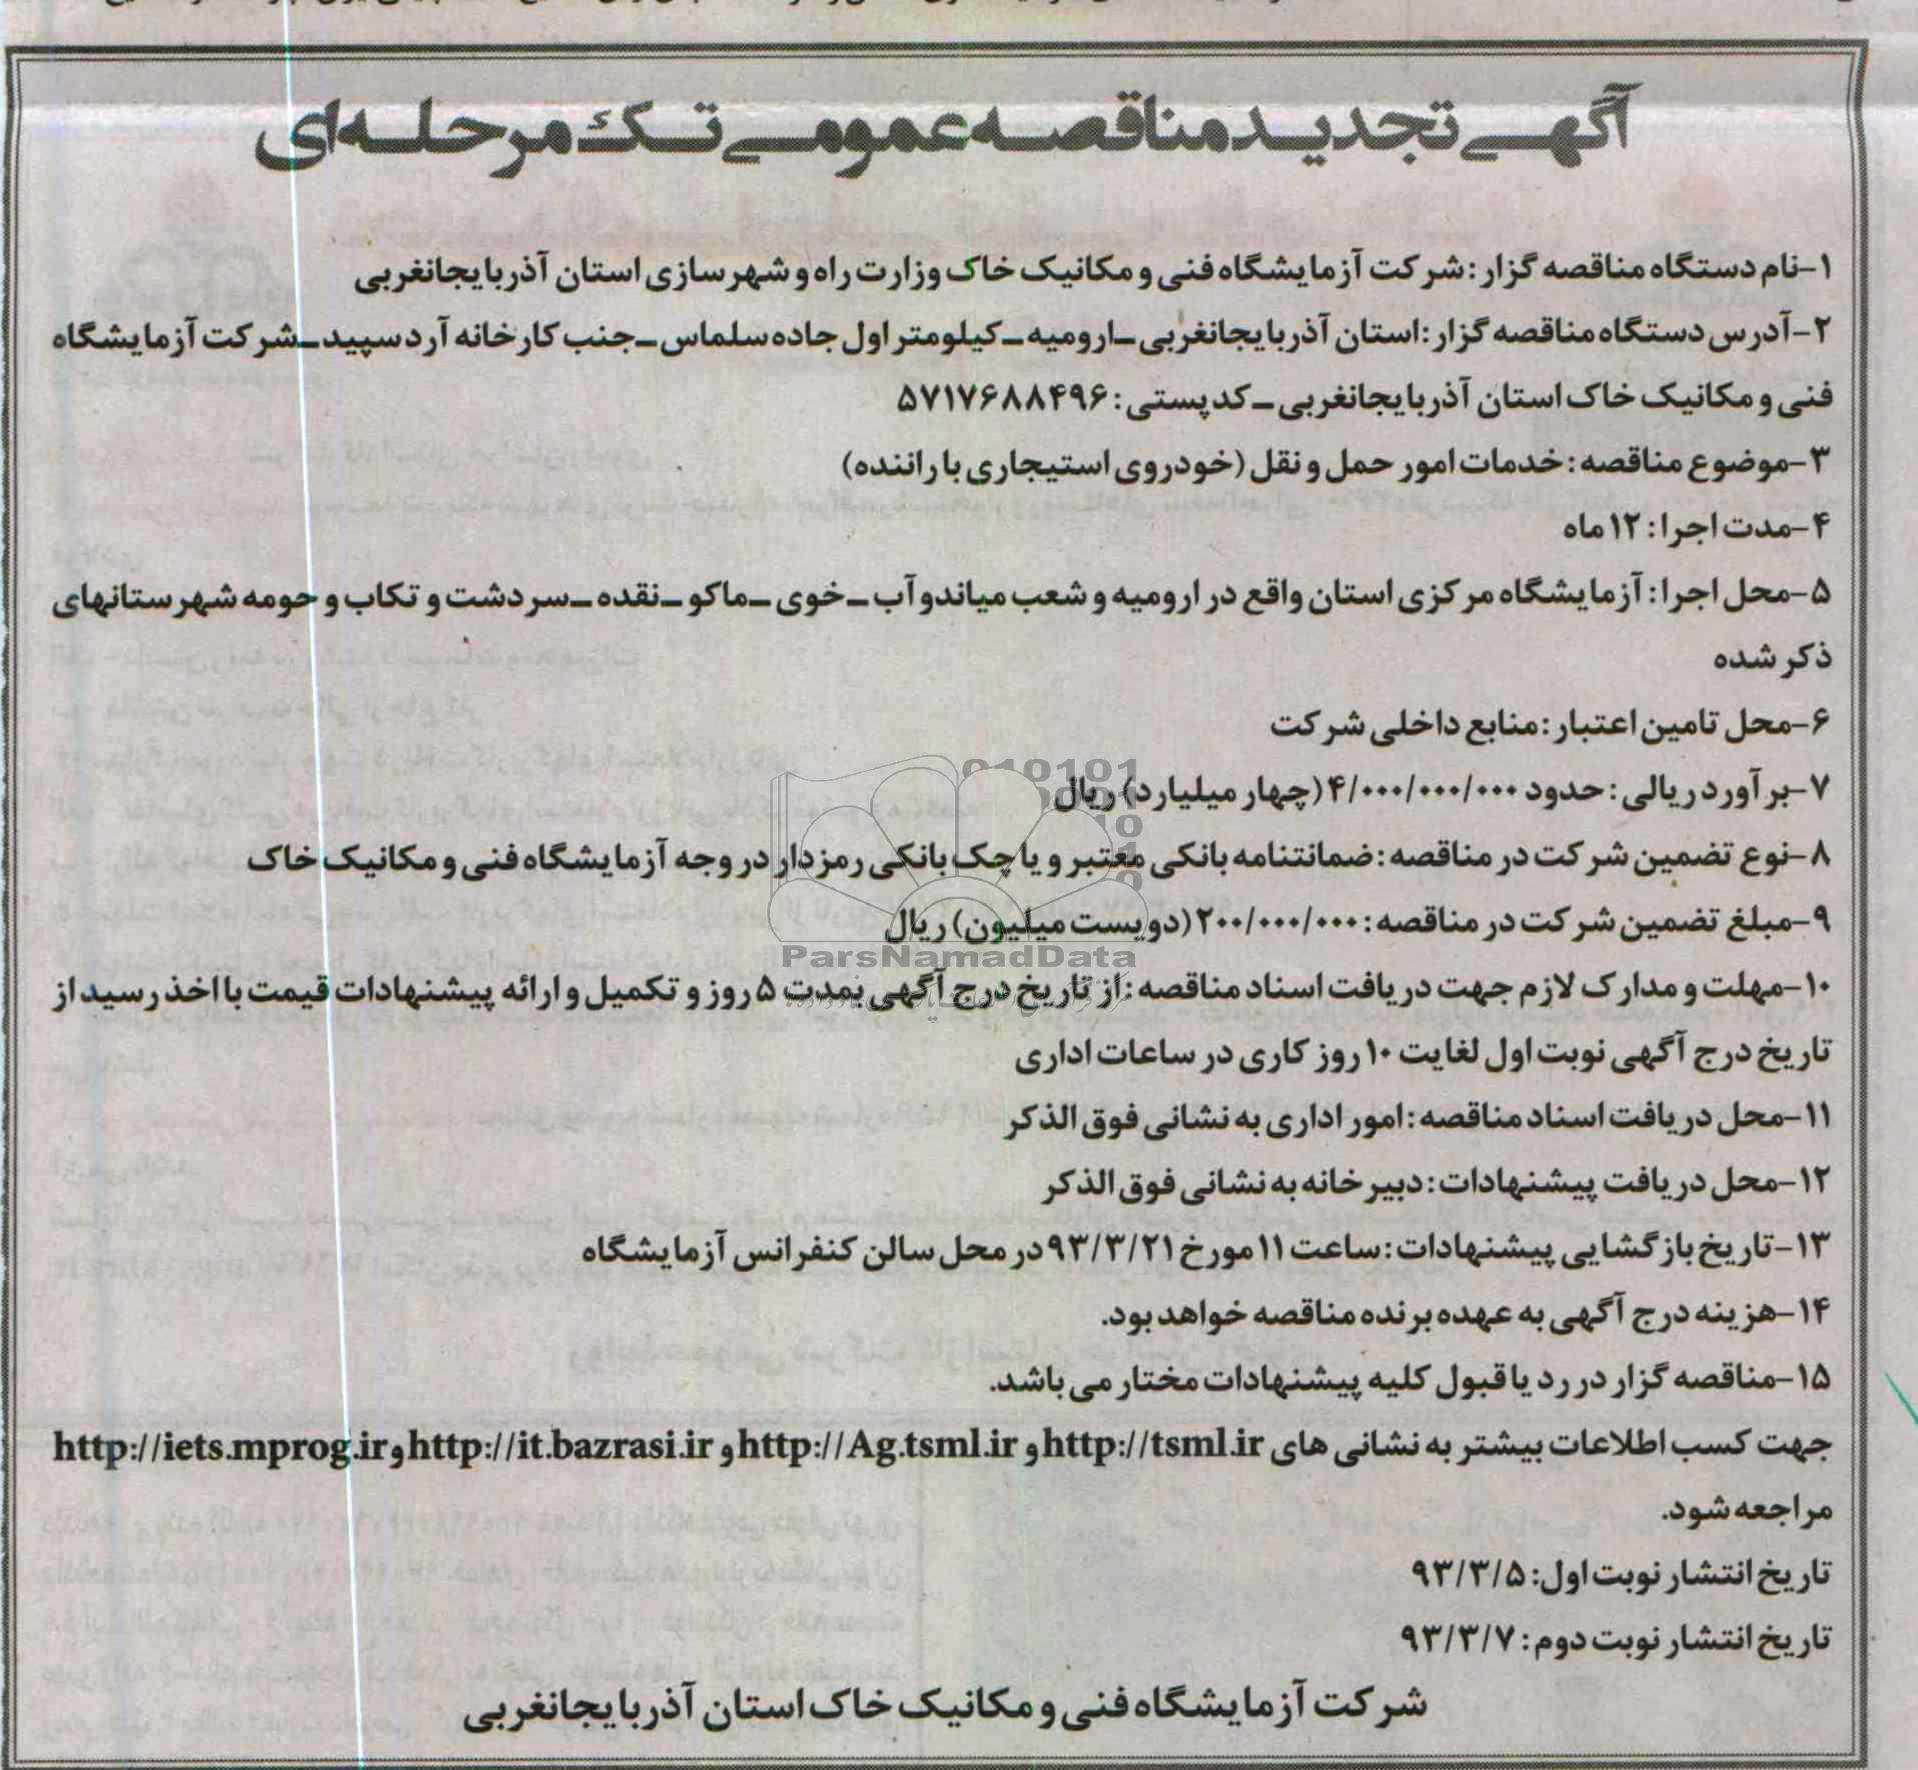 آگهی تجدید مناقصه عمومی تک مرحله‌ای
۱-نام دستگاه مناقصه گزار: شرکت آزمایشگاه فنی و مکانیک خاک وزارت راه و شهرسازی استان آذربایجانغربی
۲-آدرس دستگاه مناقصه گزار: استان آذربایجانغربی ـ ارومیه ـ کیلومتر اول جاده سلماس ـ جنب کارخانه آرد سپید ـ شرکت آزمایشگاه
فنی و مکانیک خاک استان آذربایجانغربی ـ کدپستی: ۵۷۱۷۶۸۸۴۹۶
۳-موضوع مناقصه: خدمات امور حمل و نقل (خودروی استیجاری با راننده)
۴-مدت اجرا: ۱۲ ماه
۵-محل اجرا: آزمایشگاه مرکزی استان واقع در ارومیه و شعب میاندوآب ـ خوی ـ ماکو ـ نقده ـ سردشت و تکاب و حومه شهرستانهای
ذکر شده
۶-محل تامین اعتبار: منابع داخلی شرکت
۷-برآورد ریالی: حدود ۴/۰۰۰/۰۰۰/۰۰۰ (چهار میلیارد) ریال
۸-نوع تضمین شرکت در مناقصه: ضمانتنامه بانکی معتبر و یا چک بانکی رمزدار در وجه آزمایشگاه فنی و مکانیک خاک
۹-مبلغ تضمین شرکت در مناقصه: ۲۰۰/۰۰۰/۰۰۰ (دویست میلیون) ریال
ParsNamadData
۱۰-مهلت و مدارک لازم جهت دریافت اسناد مناقصه: از تاریخ درج آگهی بمدت ۵ روز و تکمیل و ارائه پیشنهادات قیمت با اخذ رسید از
تاریخ درج آگهی نوبت اول لغایت ۱۰ روز کاری در ساعات اداری
۱۱-محل دریافت اسناد مناقصه: امور اداری به نشانی فوق الذکر
۱۲-محل دریافت پیشنهادات: دبیرخانه به نشانی فوق الذکر
۱۳-تاریخ بازگشایی پیشنهادات: ساعت ۱۱ مورخ ۹۳/۳/۲۱ در محل سالن کنفرانس آزمایشگاه
۱۴-هزینه درج آگهی به عهده برنده مناقصه خواهد بود.
۱۵-مناقصه گزار در رد یا قبول کلیه پیشنهادات مختار می باشد.
جهت کسب اطلاعات بیشتر به نشانی های http://tsml.ir و http://Ag.tsml.ir و http://it.bazrasi.ir و http://iets.mprog.ir
مراجعه شود.
تاریخ انتشار نوبت اول: ۹۳/۳/۵
تاریخ انتشار نوبت دوم: ۹۳/۳/۷
شرکت آزمایشگاه فنی و مکانیک خاک استان آذربایجانغربی